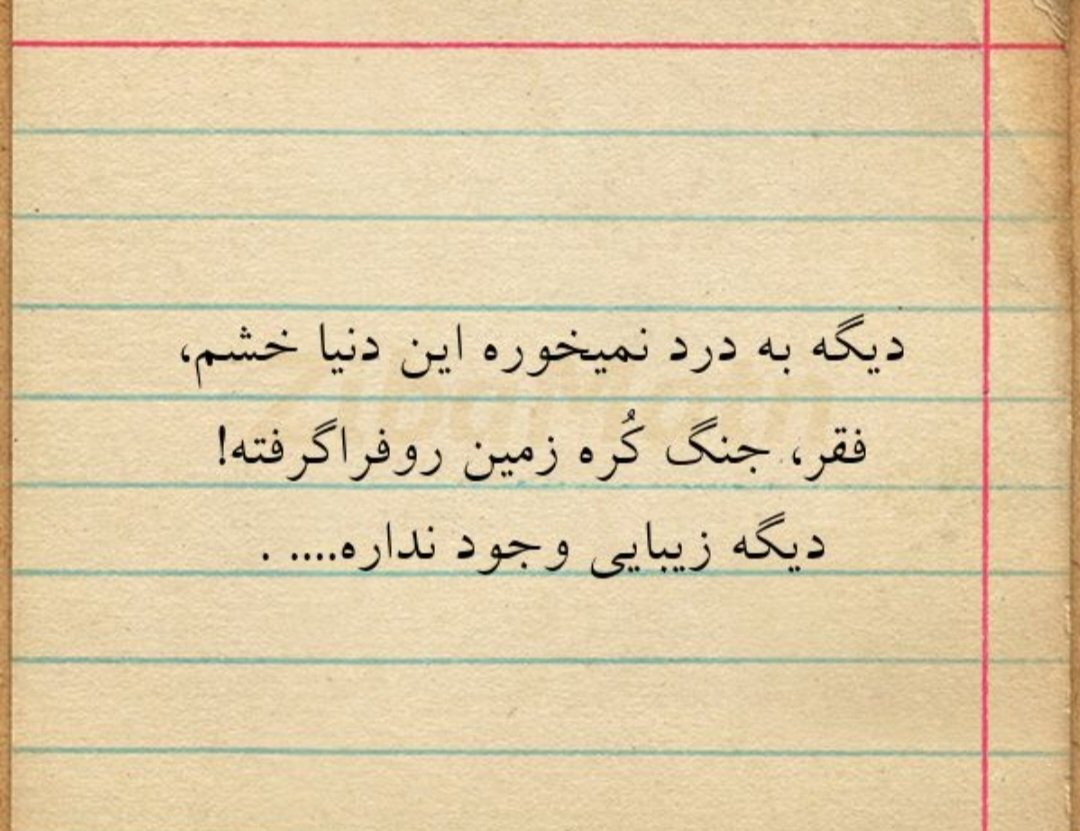 دیگه به درد نمیخوره این دنیا خشم،
فقر، جنگ کُره زمین روفراگرفته!
دیگه زیبایی وجود نداره.... .